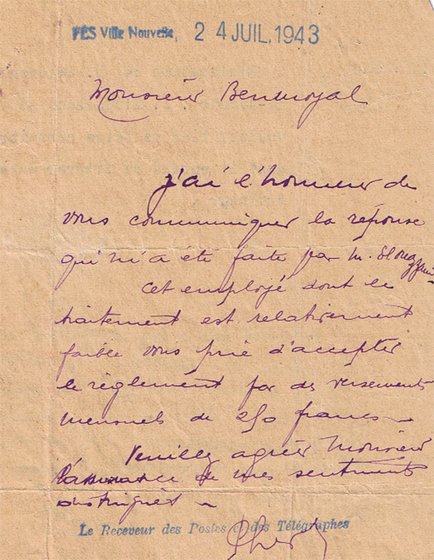 FÈS Ville Nouvelle, 24 JUIL. 1943
Monsieur Benmoyal
j'ai l'honneur de
vous communiquer la réponse
qui m'a été faite par M.
Cet employé dont le
traitement est relativement
faible vous prie d'accepter
le règlement par des versements
mensuels de 250 francs
Veuillez agréer Monsieur
l'assurance de mes sentiments
distingués
Le Receveur des Postes et des Télégraphes